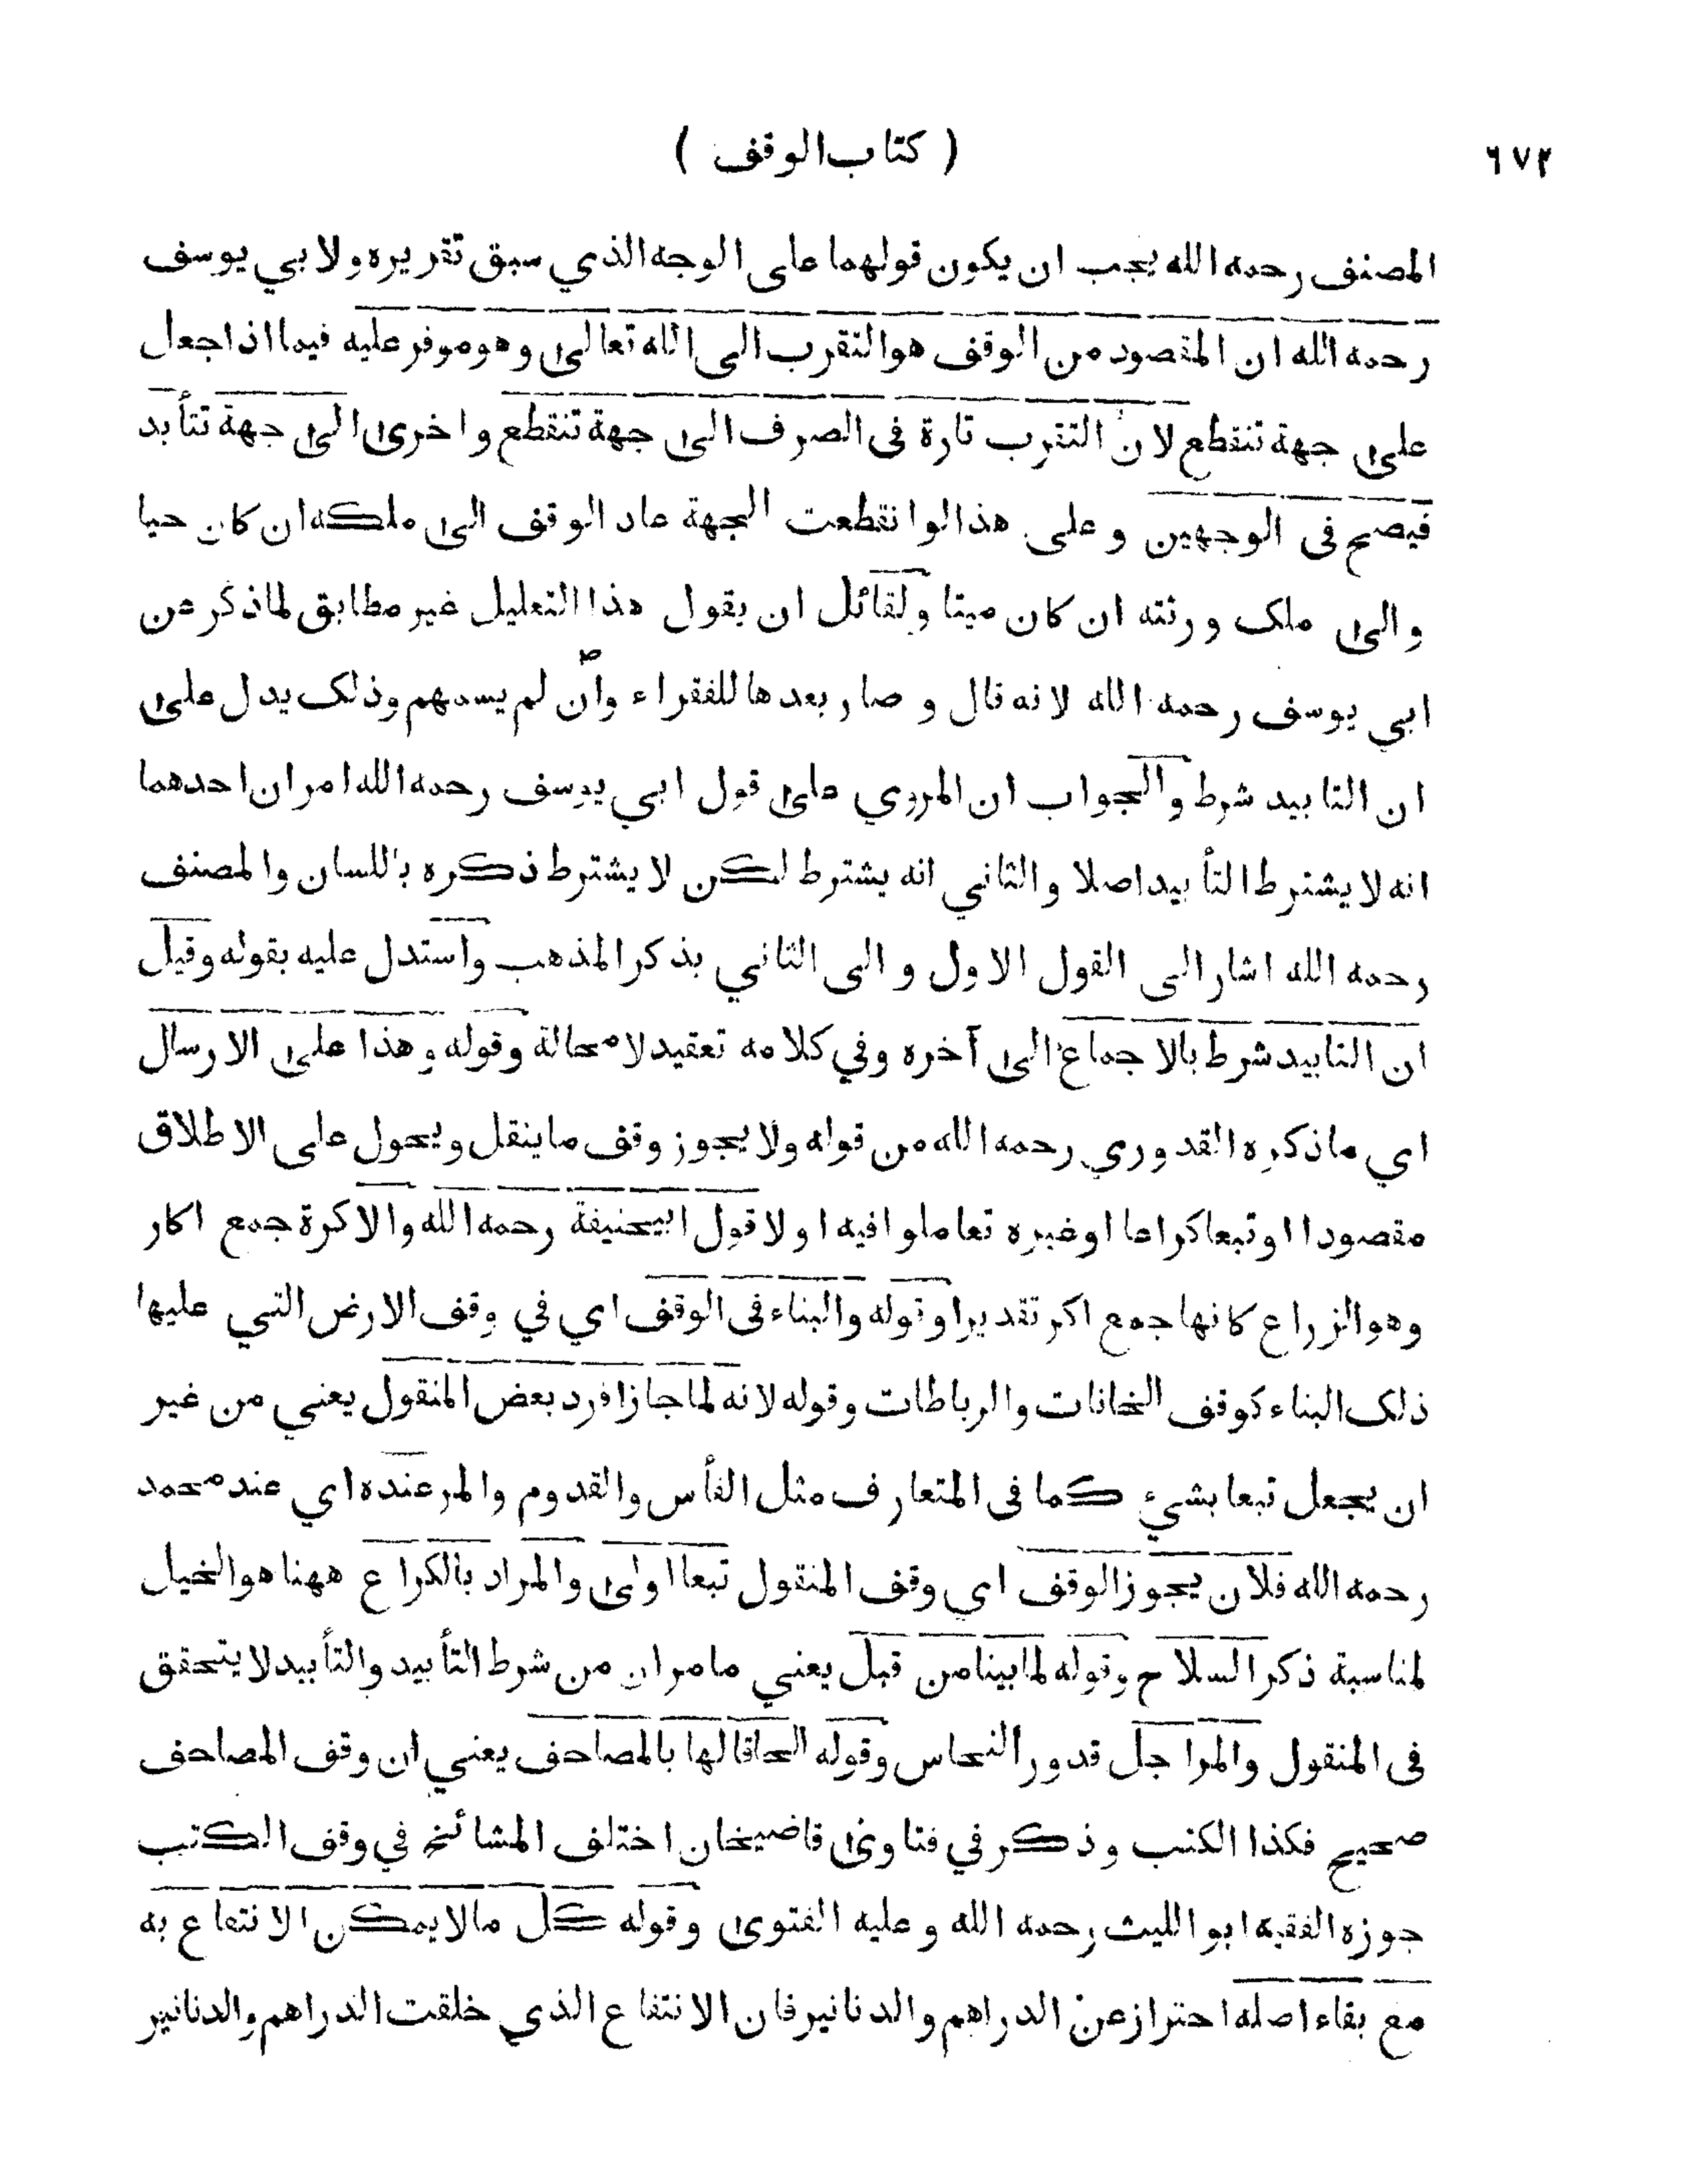 ٦٧٢ ( كتاب الوقف )
المصنف رحمه الله يجب ان يكون قولهما على الوجه الذي سبق تقريره ولابي يوسف
رحمه الله ان المقصود من الوقف هو التقرب الى الله تعالى وهو موفر عليه فيما اذا جعل
على جهة تنقطع لان التقرب تارة فى الصرف الى جهة تنقطع واخرى الى جهة تتأبد
فيصح فى الوجهين وعلى هذا لو انقطعت الجهة عاد الوقف الى ملكه ان كان حيا
والى ملك ورثته ان كان ميتا ولقائل ان يقول هذا التعليل غير مطابق لما ذكر عن
ابي يوسف رحمه الله لانه قال و صار بعدها للفقراء وان لم يسمهم وذلك يدل على
ان التابيد شرط والجواب ان المروي على قول ابي يوسف رحمه الله امران احدهما
انه لا يشترط التأبيد اصلا والثاني انه يشترط لكن لا يشترط ذكره باللسان والمصنف
رحمه الله اشار الى القول الاول و الى الثاني بذكر المذهب واستدل عليه بقوله وقيل
ان التابيد شرط بالاجماع الى آخره وفي كلامه تعقيد لا محالة وقوله وهذا على الارسال
اي ماذكره القدوري رحمه الله من قوله ولا يجوز وقف ما ينقل ويحول على الاطلاق
مقصودا او تبعا كراعا او غيره تعاملوا فيه اولا قول ابيحنيفة رحمه الله والاكرة جمع اكار
وهو الزراع كانها جمع اكر تقديرا وقوله والبناء فى الوقف اي في وقف الارض التي عليها
ذلك البناء كوقف الخانات والرباطات وقوله لانه لما جاز افرد بعض المنقول يعني من غير
ان يجعل تبعا بشيء كما فى المتعارف مثل الفأس والقدوم والمر عنده اي عند محمد
رحمه الله فلان يجوز الوقف اي وقف المنقول تبعا اولى والمراد بالكراع ههنا هو الخيل
لمناسبة ذكر السلاح وقوله لما بينا من قبل يعني ما مر ان من شرط التأبيد والتأبيد لا يتحقق
فى المنقول والمراجل قدور النحاس وقوله الحاقا لها بالمصاحف يعني ان وقف المصاحف
صحيح فكذا الكتب وذكر في فتاوى قاضيخان اختلف المشائخ في وقف الكتب
جوزه الفقيه ابو الليث رحمه الله وعليه الفتوى وقوله كل مالا يمكن الانتفاع به
مع بقاء اصله احتراز عن الدراهم والدنانير فان الانتفاع الذي خلقت الدراهم والدنانير